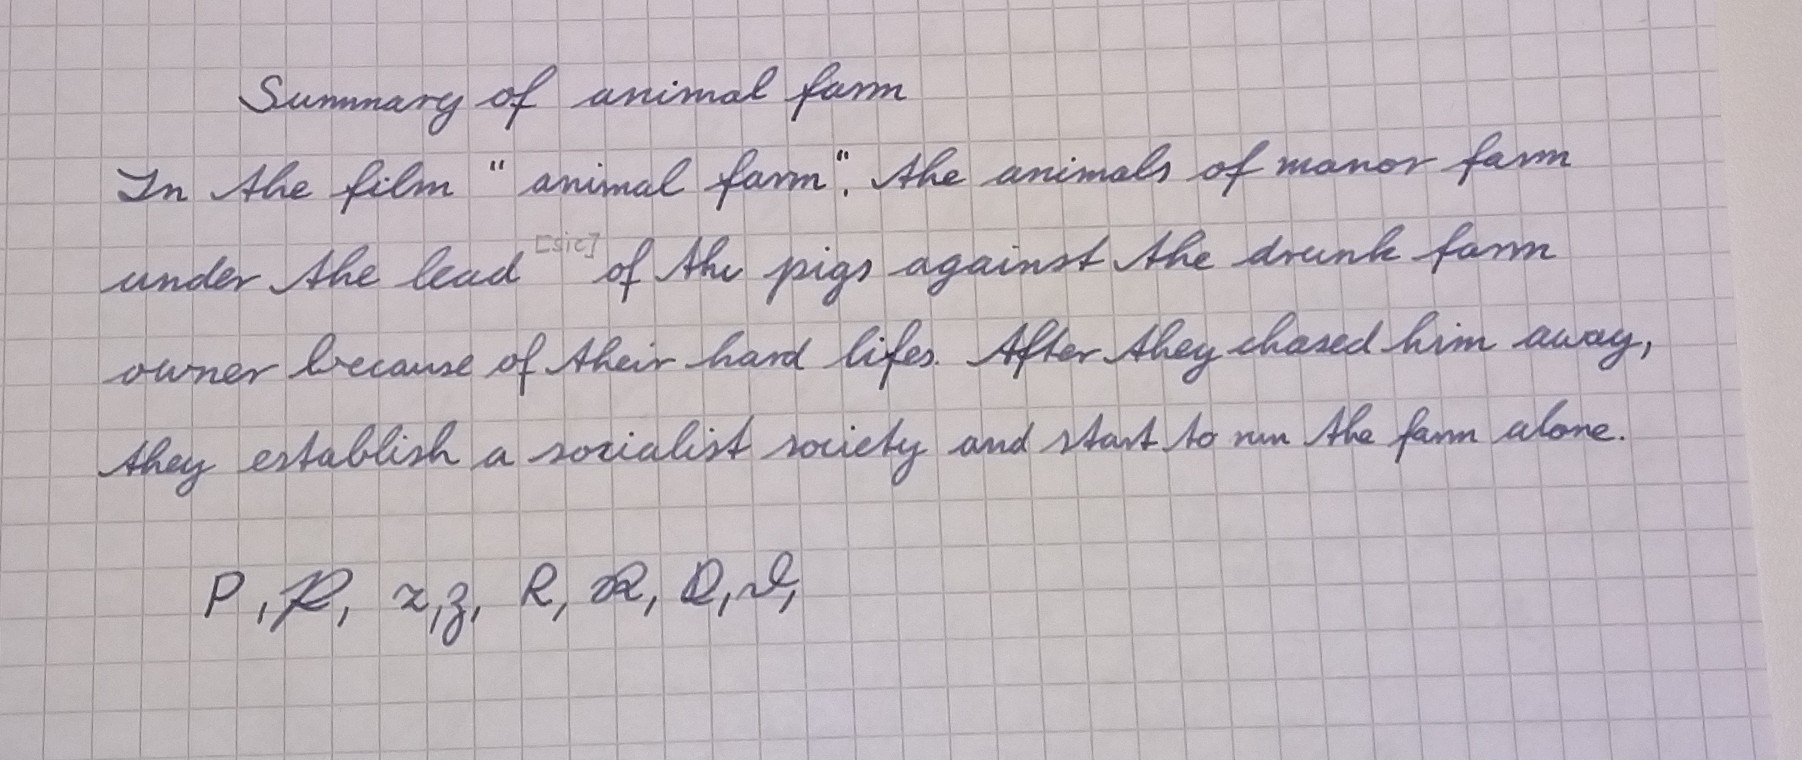 Summary of animal farm
In the film " animal farm". the animals of manor farm
under the lead [sic] of the pigs against the drunk farm
owner because of their hard lifes. After they chased him away,
they establish a socialist society and start to run the farm alone.
P, P, z, z, R, R, Q, Q,